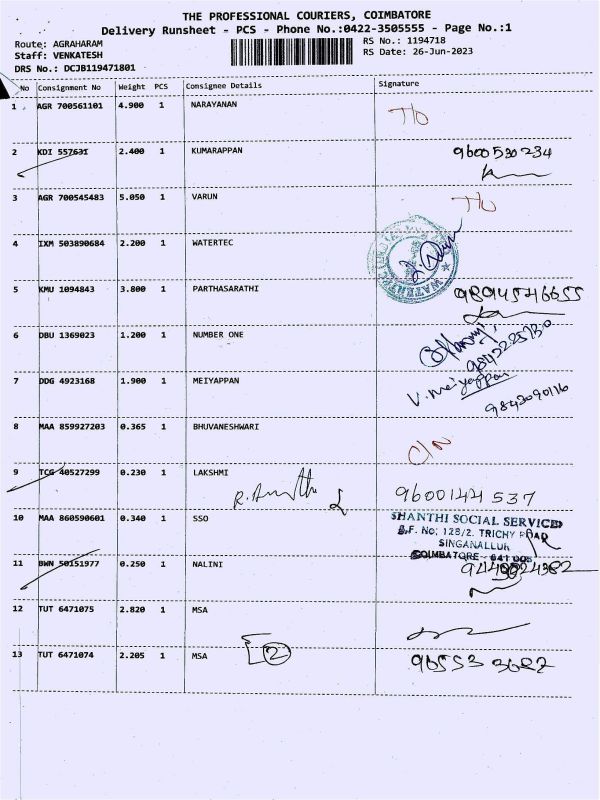 THE PROFESSIONAL COURIERS, COIMBATORE
Delivery Runsheet - PCS - Phone No.:0422-3505555 - Page No.:1
Route: AGRAHARAM RS No.: 1194718
Staff: VENKATESH RS Date: 26-Jun-2023
DRS No.: DCJB119471801
No Consignment No Weight PCS Consignee Details Signature
1 AGR 700561101 4.900 1 NARAYANAN T/O
2 KDI 557631 2.400 1 KUMARAPPAN 9600530234
3 AGR 700545483 5.050 1 VARUN T/O
4 IXM 503890684 2.200 1 WATERTEC
5 KMU 1094843 3.800 1 PARTHASARATHI 9894546655
6 DBU 1369023 1.200 1 NUMBER ONE
7 DDG 4923168 1.900 1 MEIYAPPAN V. Meiyappan
9843090116
8 MAA 859927203 0.365 1 BHUVANESHWARI C/N
9 TCG 40527299 0.230 1 LAKSHMI 9600144537
10 MAA 860590601 0.340 1 SSO SHANTHI SOCIAL SERVICES
S.F. No; 128/2. TRICHY ROAD
SINGANALLUR
COIMBATORE - 641 005
11 BWN 50151977 0.250 1 NALINI
12 TUT 6471075 2.820 1 MSA
13 TUT 6471074 2.205 1 MSA 2